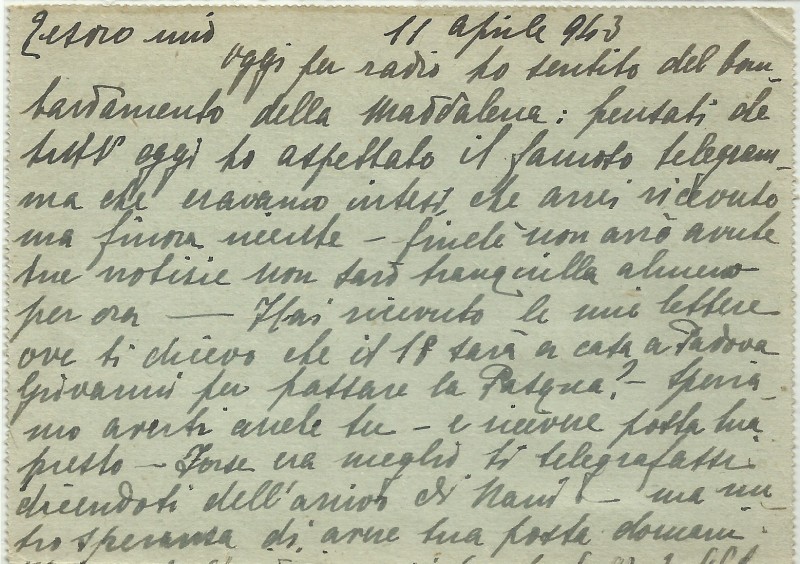 Tesoro mio 11 aprile 943
oggi per radio ho sentito del bom-
bardamento della Maddalena: pensati che
tutt' oggi ho aspettato il famoso telegram-
ma che eravamo intesi che avrei ricevuto
ma finora niente - finchè non avrò avute
tue notizie non sarò tranquilla almeno
per ora — Hai ricevuto le mie lettere
ove ti dicevo che il 18 sarà a casa a Padova
Giovanni per passare la Pasqua? - Speria-
mo averti anche tu - e ricevere posta tua
presto - Forse era meglio ti telegrafassi
dicendoti dell'arrivo di Nani - ma nu
tro speranza di avere tua posta domani.